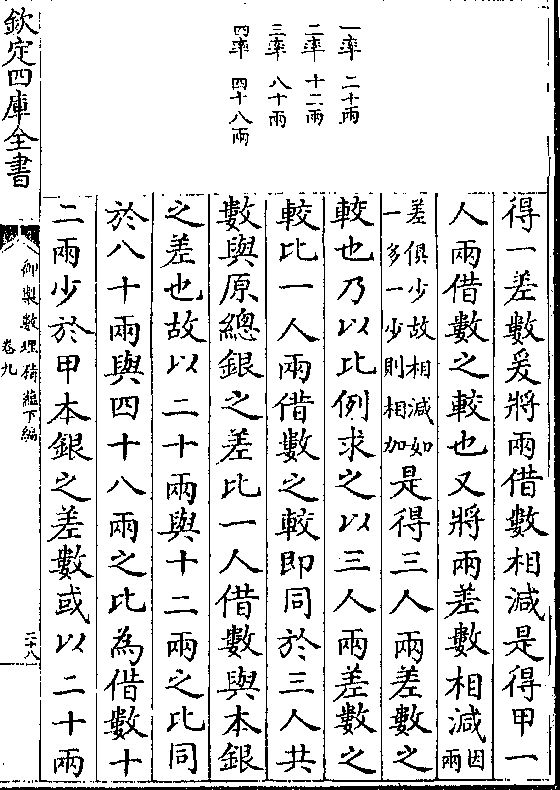 一率 二十兩
二率 十二兩
三率 八十兩
四率 四十八兩
得一差數爰將兩借數相減是得甲一
人兩借數之較也又將兩差數相減因兩
差俱少故相減如一多一少則相加是得三人兩差數之
較也乃以比例求之以三人兩差數之
較比一人兩借數之較即同於三人共
數與原總銀之差比一人借數與本銀
之差也故以二十兩與十二兩之比同
於八十兩與四十八兩之比為借數十
二兩少於甲本銀之差數或以二十兩
欽定四庫全書
御製數理精蘊下編
卷九
二十八